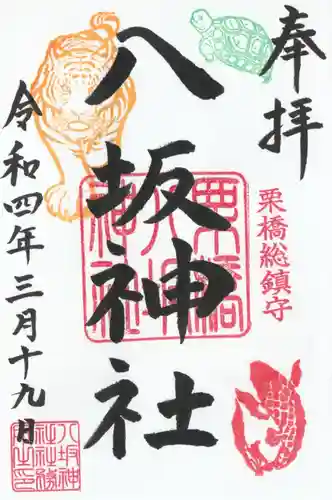 奉拝
栗橋総鎮守
八坂神社
栗橋
八坂
神社
令和四年三月十九日